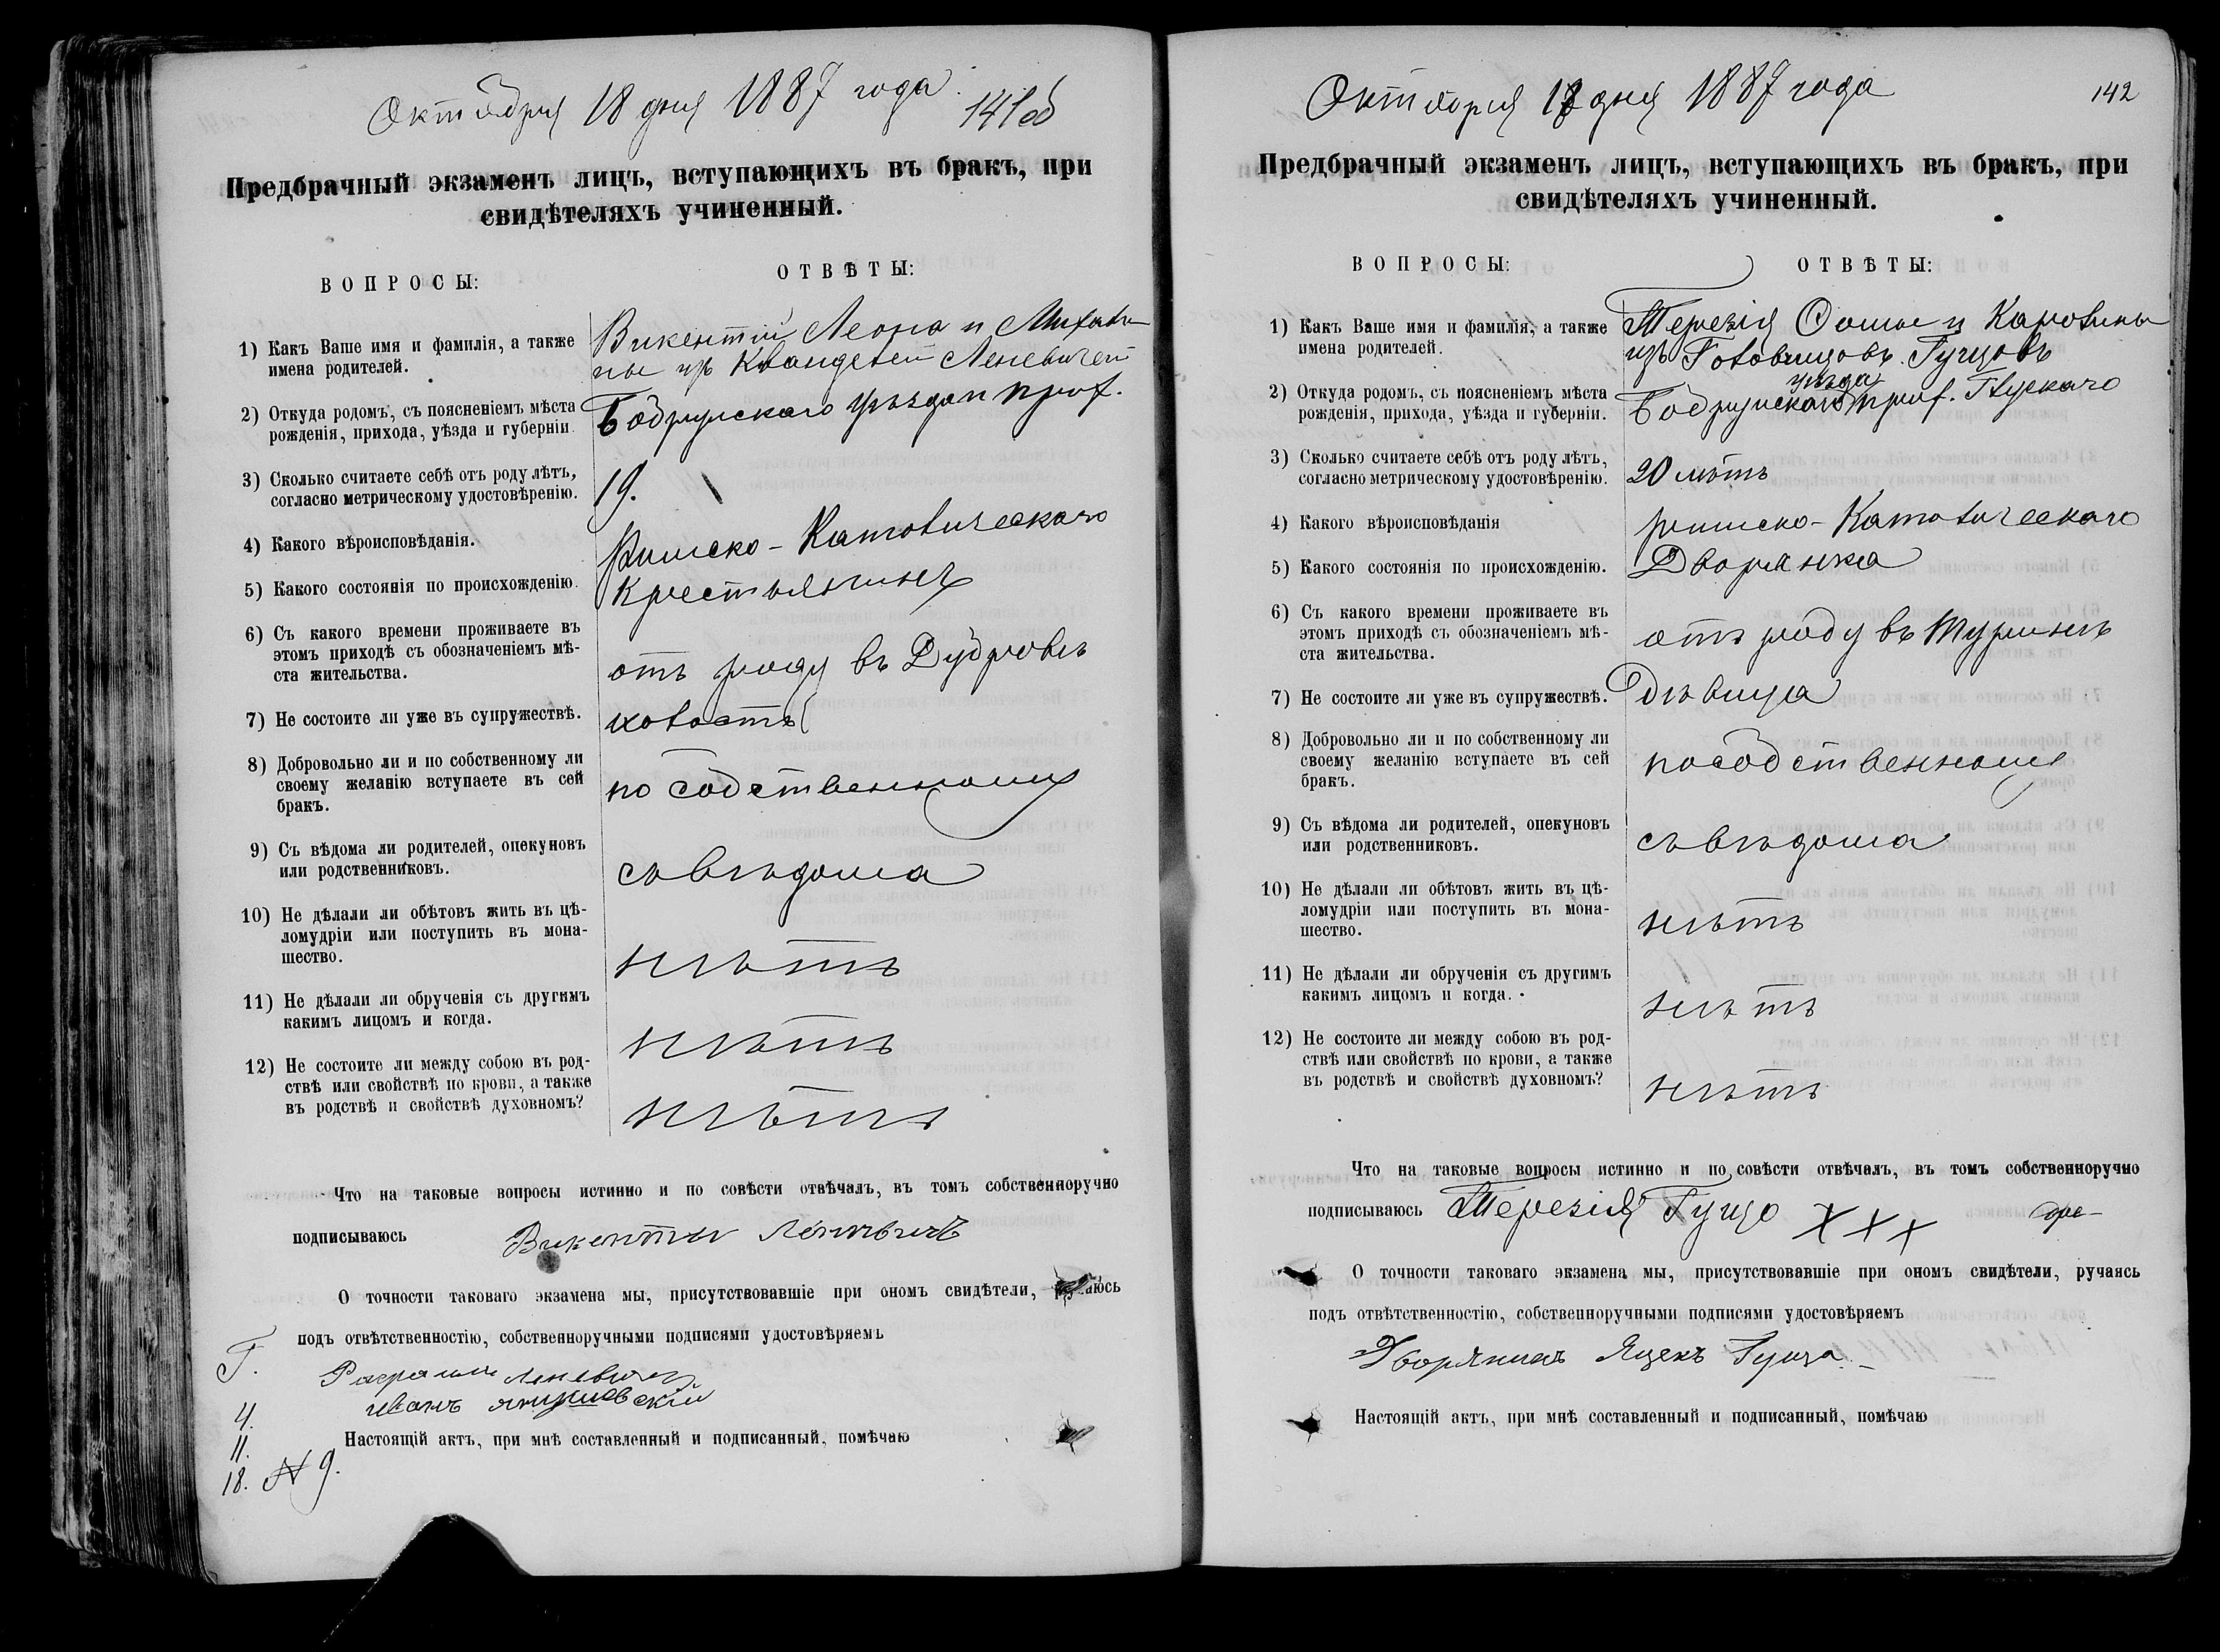 Октября 18 дня 1887 года.
141об
Предбрачный экзаменъ лицъ, вступающихъ въ бракъ, при
свидѣтеляхъ учиненный.
ВОПРОСЫ:
ОТВѢТЫ:
1) Какъ Ваше имя и фамилія, а также
имена родителей.
Викентій Леона и Михали-
ны изъ
2) Откуда родомъ, съ поясненіемъ мѣста
рожденія, прихода, уѣзда и губерніи
Бобруйскаго уѣзда и
3) Сколько считаете себѣ отъ роду лѣтъ,
согласно метрическому удостовѣренію.
19.
4) Какого вѣроисповѣданія.
Римско-Католическаго
5) Какого состоянія по происхожденію.
Крестьянинъ
6) Съ какого времени проживаете въ
этомъ приходѣ съ обозначеніемъ мѣ-
ста жительства.
отъ роду въ Дубровѣ
7) Не состоите ли уже въ супружествѣ.
холостъ
8) Добровольно ли и по собственному ли
своему желанію вступаете въ сей
бракъ.
по собственному
9) Съ вѣдома ли родителей, опекуновъ
или родственниковъ.
съ вѣдома
10) Не дѣлали ли обѣтовъ жить въ цѣ-
ломудріи или поступить въ мона-
шество.
нѣтъ
11) Не дѣлали ли обрученія съ другимъ
какимъ лицомъ и когда.
нѣтъ
12) Не состоите ли между собою въ род-
ствѣ или свойствѣ по крови, а также
въ родствѣ и свойствѣ духовномъ?
нѣтъ
Что на таковые вопросы истинно и по совѣсти отвѣчалъ, въ томъ собственноручно
подписываюсь Викентій
О точности таковаго экзамена мы, присутствовавшіе при ономъ свидѣтели, ручаюсь
подъ отвѣтственностію, собственноручными подписями удостовѣряемъ
Иванъ
4.
11.
Настоящій актъ, при мнѣ составленный и подписанный, помѣчаю
18. N 9.
Октября 18 дня 1887 года
142
Предбрачный экзаменъ лицъ, вступающихъ въ бракъ, при
свидѣтеляхъ учиненный.
ВОПРОСЫ:
ОТВѢТЫ:
1) Какъ Ваше имя и фамилія, а также
имена родителей.
Терезія Ѳомы и Каролины
изъ Головнцовъ Гущовъ
2) Откуда родомъ, съ поясненіемъ мѣста
рожденія, прихода, уѣзда и губерніи.
уѣзда
Бобруйскаго Глускаго
3) Сколько считаете себѣ отъ роду лѣтъ,
согласно метрическому удостовѣренію.
20 лѣтъ
4) Какого вѣроисповѣданія
римско-Католическаго
5) Какого состоянія по происхожденію.
Дворянка
6) Съ какого времени проживаете въ
этомъ приходѣ съ обозначеніемъ мѣ-
ста жительства.
отъ роду въ Туринѣ
7) Не состоите ли уже въ супружествѣ.
Дѣвица
8) Добровольно ли и по собственному ли
своему желанію вступаете въ сей
бракъ.
по собственному
9) Съ вѣдома ли родителей, опекуновъ
или родственниковъ.
съ вѣдома
10) Не дѣлали ли обѣтовъ жить въ цѣ-
ломудріи или поступить въ мона-
шество.
нѣтъ
11) Не дѣлали ли обрученія съ другимъ
какимъ лицомъ и когда.
нѣтъ
12) Не состоите ли между собою въ род-
ствѣ или свойствѣ по крови, а также
въ родствѣ и свойствѣ духовномъ?
нѣтъ
Что на таковые вопросы истинно и по совѣсти отвѣчалъ, въ томъ собственноручно
подписываюсь Терезія Гущо XXX
О точности таковаго экзамена мы, присутствовавшіе при ономъ свидѣтели, ручаясь
подъ отвѣтственностію, собственноручными подписями удостовѣряемъ
Дворянинъ Яцекъ Гуща
Настоящій актъ, при мнѣ составленный и подписанный, помѣчаю